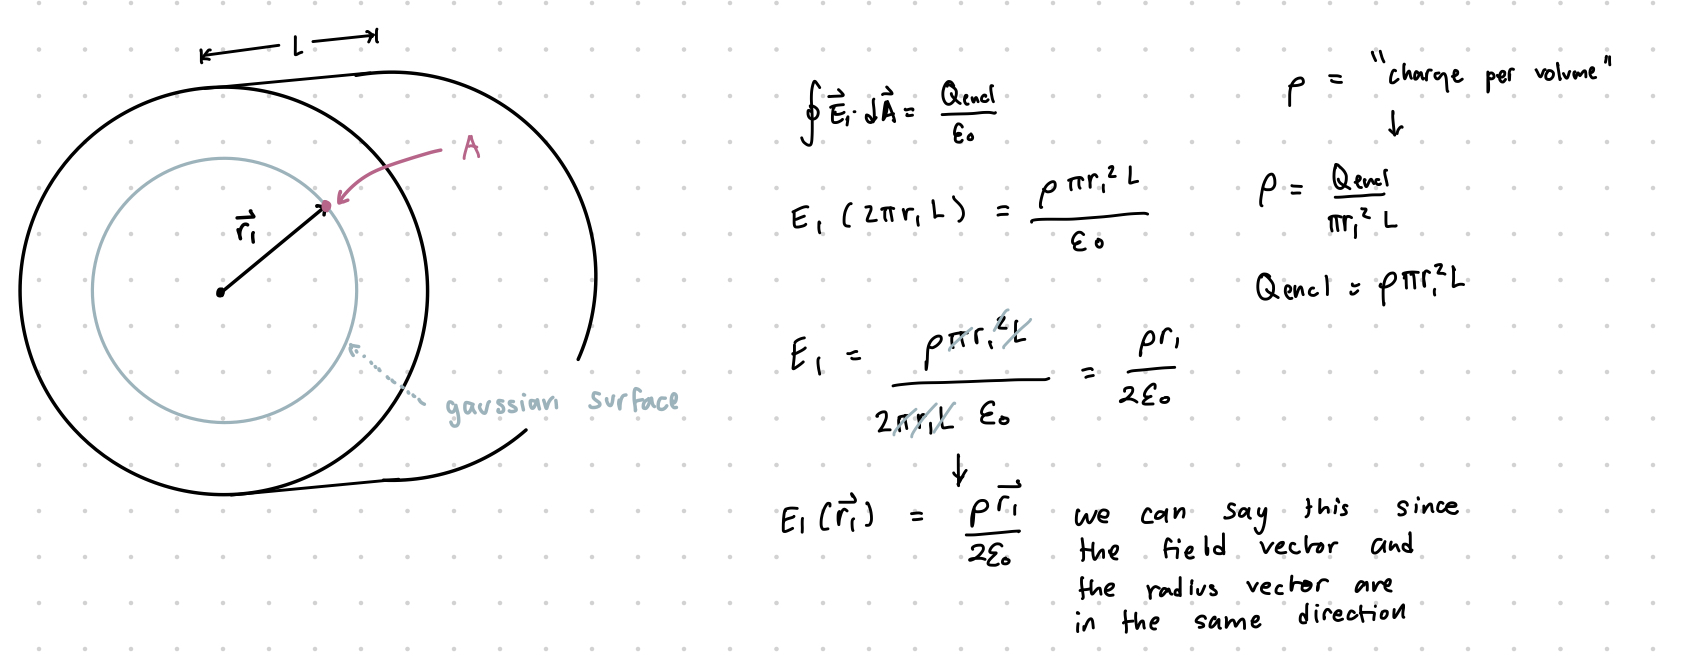 L
A
r⃗₁
gaussian surface
∮ E⃗₁ · dA⃗ = Qencl / ε₀
E₁ (2πr₁L) = ρπr₁²L / ε₀
E₁ = ρπr₁²L / 2πr₁L ε₀ = ρr₁ / 2ε₀
↓
E₁(r⃗₁) = ρr⃗₁ / 2ε₀
we can say this since
the field vector and
the radius vector are
in the same direction
ρ = "charge per volume"
↓
ρ = Qencl / πr₁²L
Qencl = ρπr₁²L